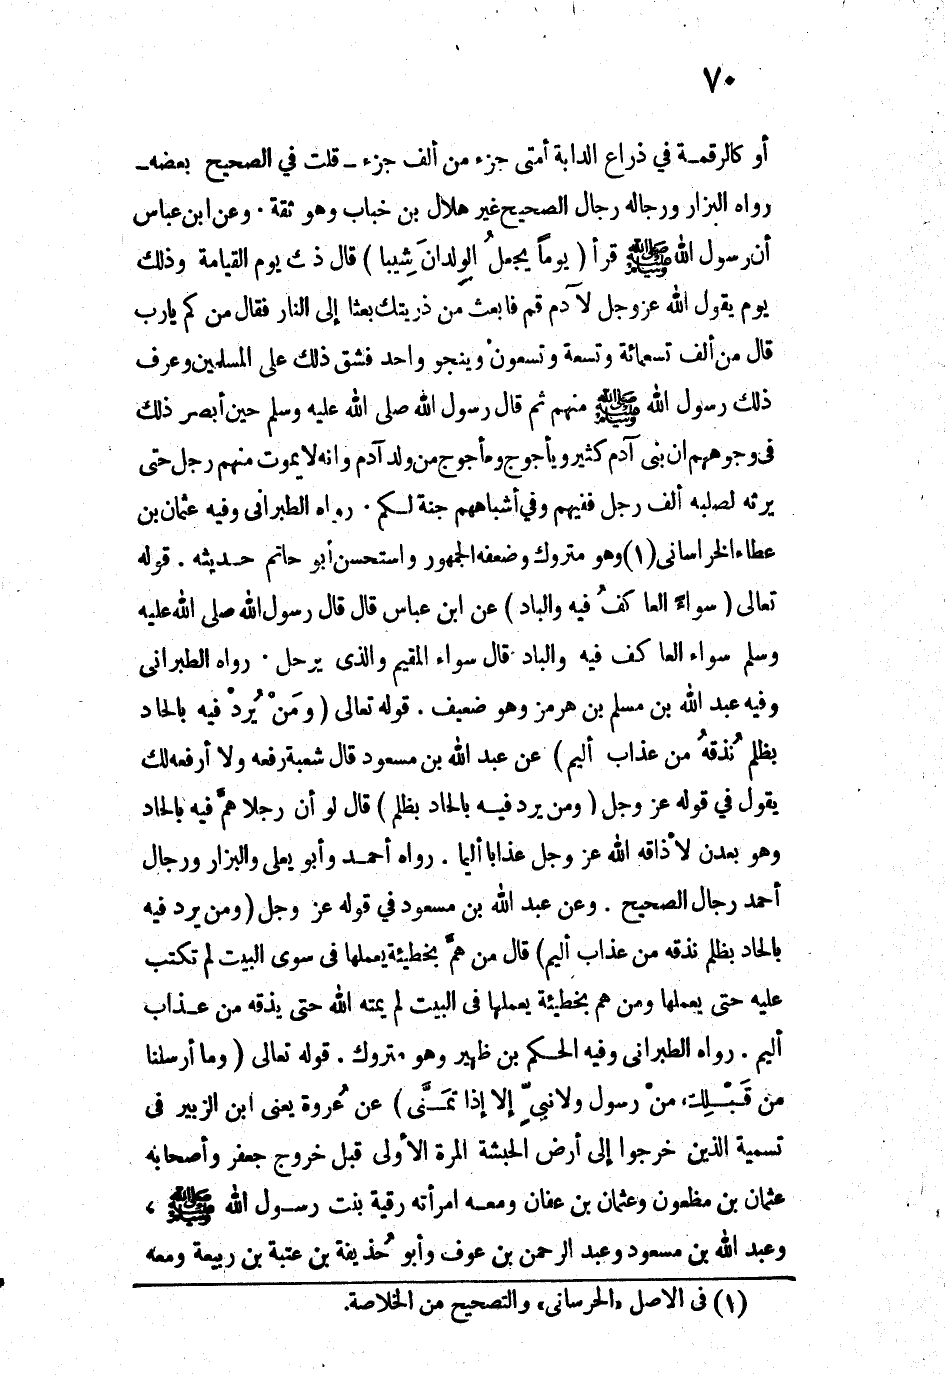 ٧٠
أو كالرقمة في ذراع الدابة أمتى جزء من ألف جزء ـ قلت في الصحيح بعضه ـ
رواه البزار ورجاله رجال الصحيح غير هلال بن خباب وهو ثقة . وعن ابن عباس
أن رسول الله ﷺ قرأ ( يوماً يجعلُ الوِلدانَ شِيبا ) قال ذك يوم القيامة وذلك
يوم يقول الله عز وجل لآدم قم فابعث من ذريتك بعثا إلى النار فقال من كم يارب
قال من ألف تسعمائة وتسعة وتسعون وينجو واحد فشق ذلك على المسلمين وعرف
ذلك رسول الله ﷺ منهم ثم قال رسول الله صلى الله عليه وسلم حين أبصر ذلك
فى وجوههم ان بنى آدم كثير ويأجوج ومأجوج من ولد آدم وانه لا يموت منهم رجل حتى
يرثه لصلبه ألف رجل ففيهم وفي أشباههم جنة لكم . رواه الطبرانى وفيه عثمان بن
عطاء الخراسانى (١) وهو متروك وضعفه الجمهور واستحسن أبو حاتم حديثه . قوله
تعالى ( سواءً العاكفُ فيه والباد ) عن ابن عباس قال قال رسول الله صلى الله عليه
وسلم سواء العاكف فيه والباد قال سواء المقيم والذى يرحل . رواه الطبرانى
وفيه عبد الله بن مسلم بن هرمز وهو ضعيف . قوله تعالى ( ومَنْ يُردْ فيه بالحاد
بظلم نُذقهُ من عذاب أليم ) عن عبد الله بن مسعود قال شعبة رفعه ولا أرفعه لك
يقول في قوله عز وجل ( ومن يرد فيه بالحاد بظلم ) قال لو أن رجلا همَّ فيه بالحاد
وهو بعدن لأذاقه الله عز وجل عذابا أليما . رواه أحمد وأبو يعلى والبزار ورجال
أحمد رجال الصحيح . وعن عبد الله بن مسعود في قوله عز وجل ( ومن يرد فيه
بالحاد بظلم نذقه من عذاب أليم ) قال من همَّ بخطيئة يعملها فى سوى البيت لم تكتب
عليه حتى يعملها ومن هم بخطيئة يعملها فى البيت لم يمته الله حتى يذقه من عذاب
أليم . رواه الطبرانى وفيه الحكم بن ظهير وهو متروك . قوله تعالى ( وما أرسلنا
من قَبْلك منْ رسول ولا نبيٍّ إلا إذا تمنَّى ) عن عُروة يعنى ابن الزبير فى
تسمية الذين خرجوا إلى أرض الحبشة المرة الأولى قبل خروج جعفر وأصحابه
عثمان بن مظعون وعثمان بن عفان ومعه امرأته رقية بنت رسول الله ﷺ ،
وعبد الله بن مسعود وعبد الرحمن بن عوف وأبو حُذيفة بن عتبة بن ربيعة ومعه
(١) فى الاصل «الحرسانى» والتصحيح من الخلاصة.